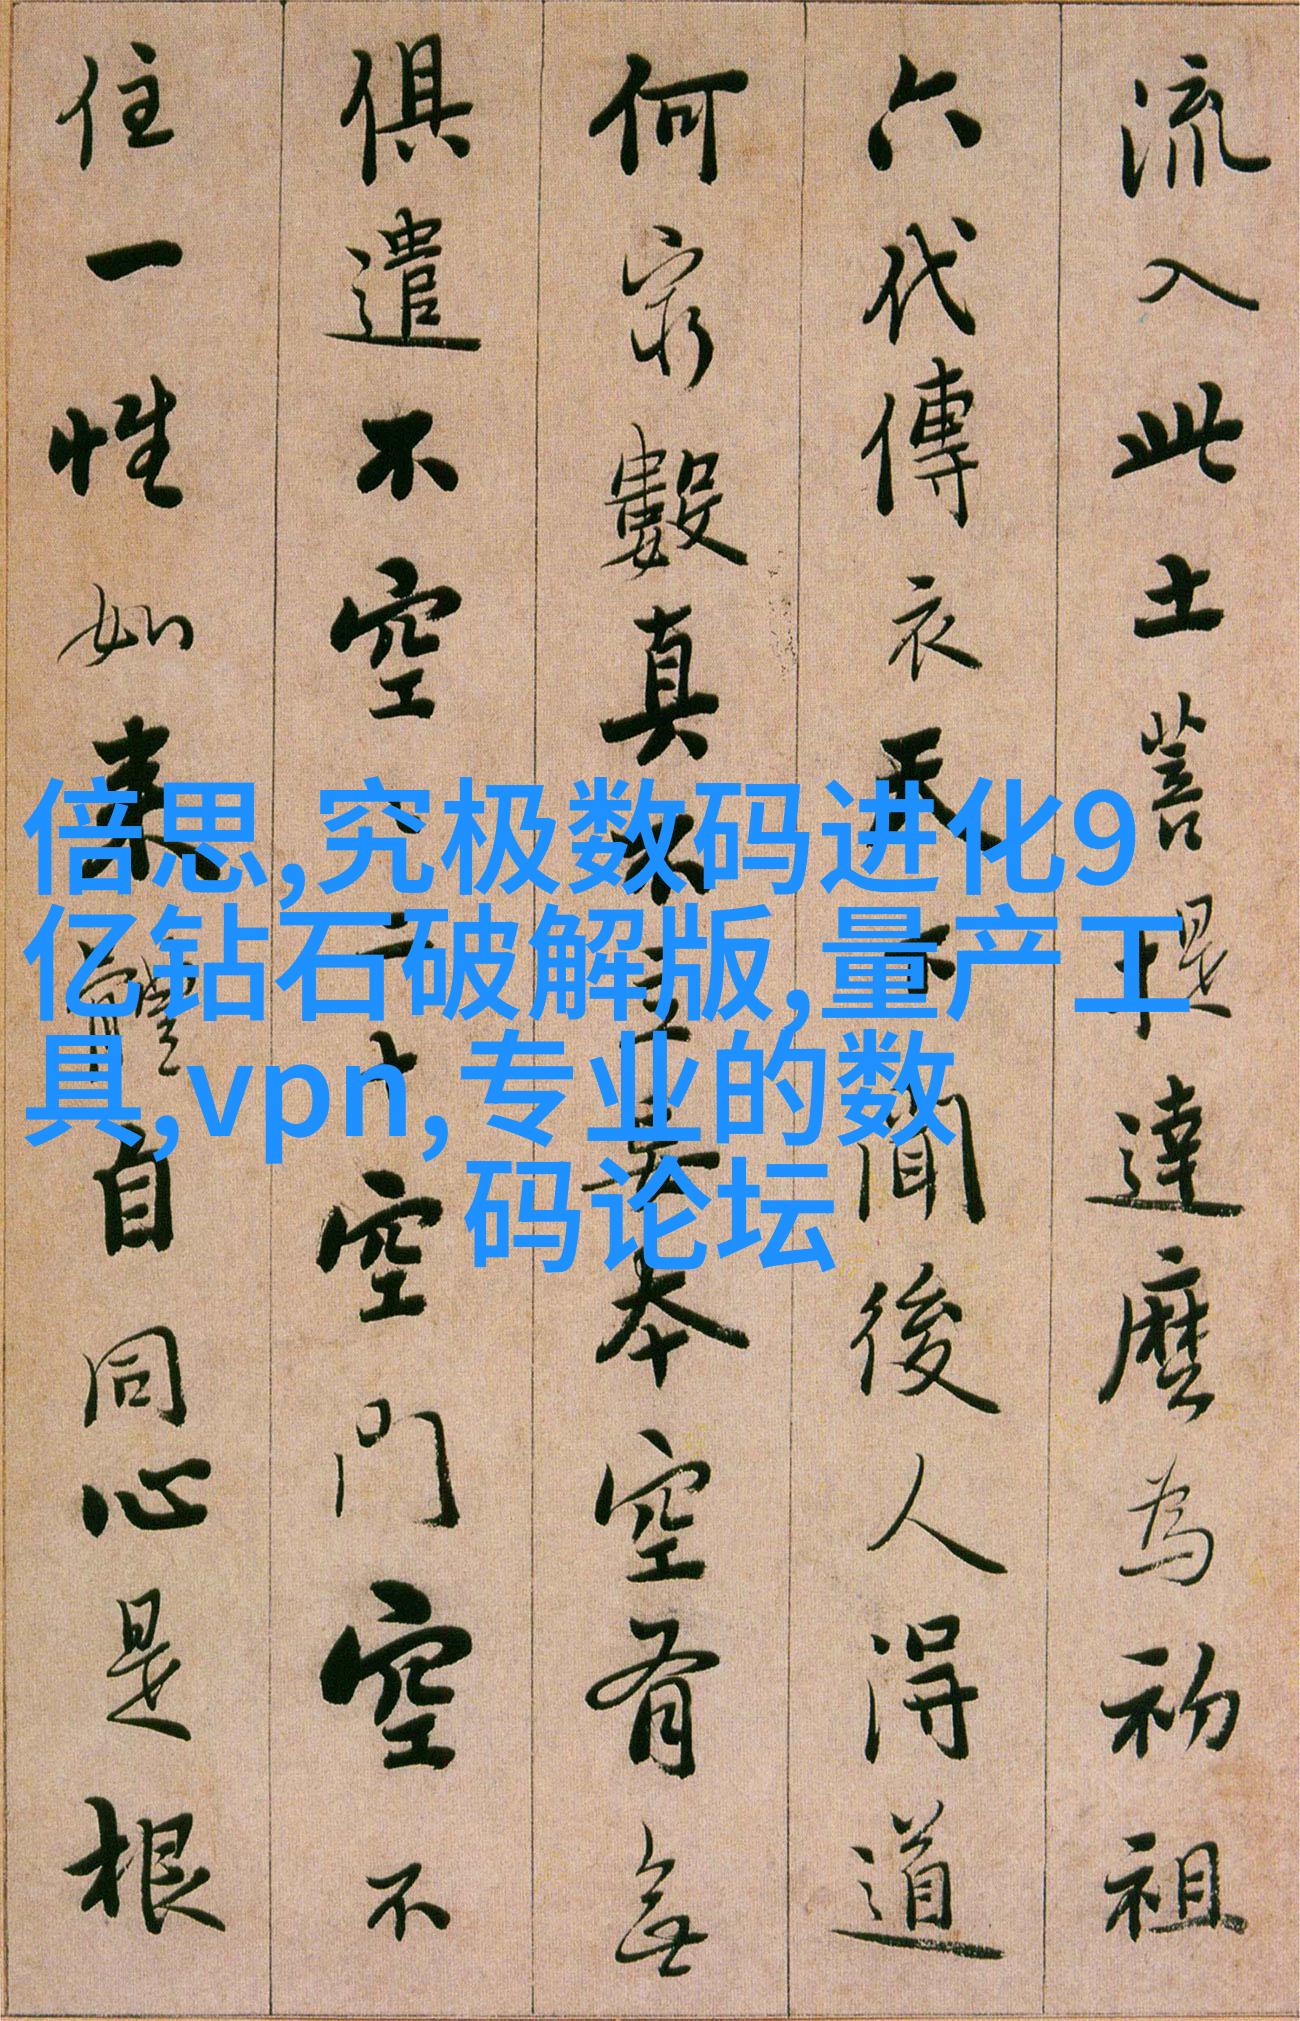 流入此土菩提達麼為初祖
六代傳衣天下聞後人得道
何窮數真不立妄本空有無
俱遣不空々二十空門空不
住一性如來體自同心是根
倍思,究极数码进化9
亿钻石破解版,量产工
具,vpn,专业的数
码论坛